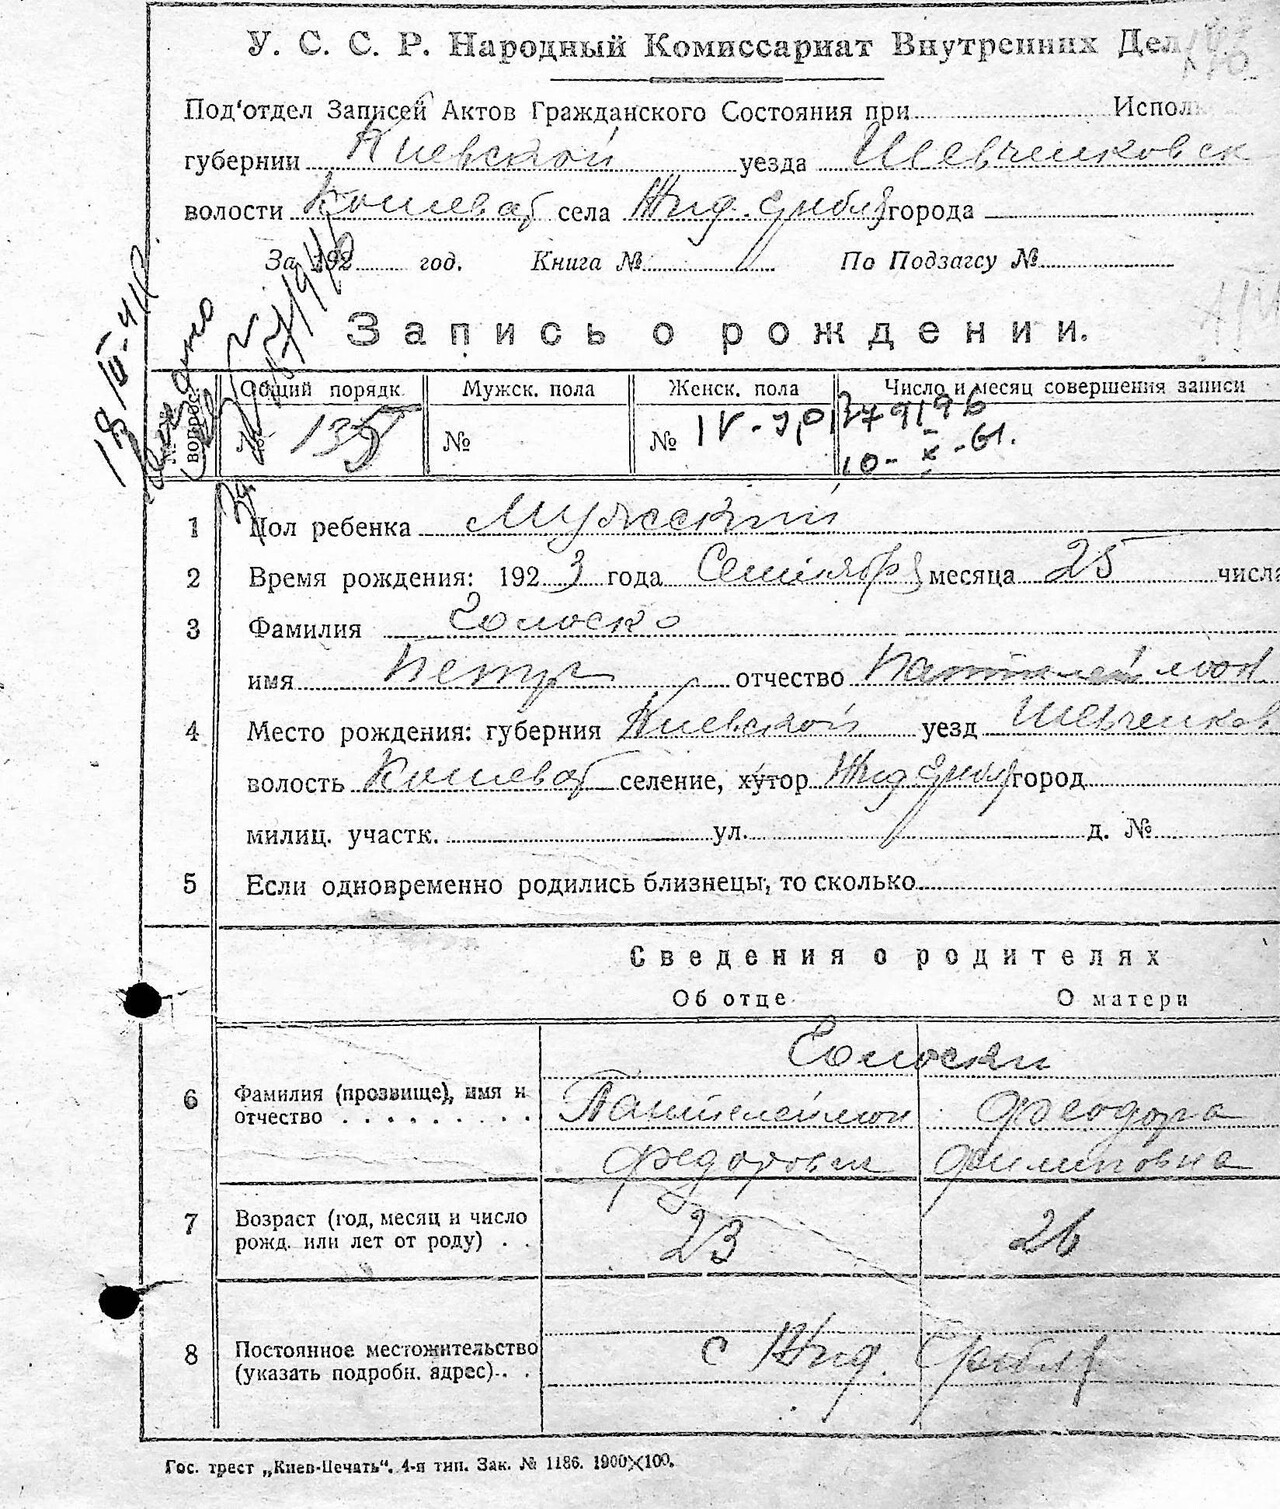 У. С. С. Р. Народный Комиссариат Внутренних Дел
Под'отдел Записей Актов Гражданского Состояния при Испол
губернии Киевской уезда Шевченковск
волости Кошеват села Жид. Гребля города
За 192 год. Книга № По Подзагсу №
Запись о рождении.
Общий порядк. Мужск. пола Женск. пола Число и месяц совершения записи
вопрос. № 135 № № IV-ЯР 379196
10-X-61.
18 III-41
1 Пол ребенка Мужеский
2 Время рождения: 1923 года Сентября месяца 25 числа
3 Фамилия Голоско
имя Петр отчество
4 Место рождения: губерния Киевской уезд Шевченков
волость Кошеват селение, хутор Жид Гребля город
милиц. участк. ул. д. №
5 Если одновременно родились близнецы, то сколько
Сведения о родителях
Об отце О матери
Голоски
6 Фамилия (прозвище), имя и отчество Пантелеймон Феодора
Федорович Филиповна
7 Возраст (год, месяц и число рожд. или лет от роду) 23 26
8 Постоянное местожительство (указать подробн. адрес) с Жид. Гребля
Гос. трест „Киев-Печать“. 4-я тип. Зак. № 1186. 1900×100.